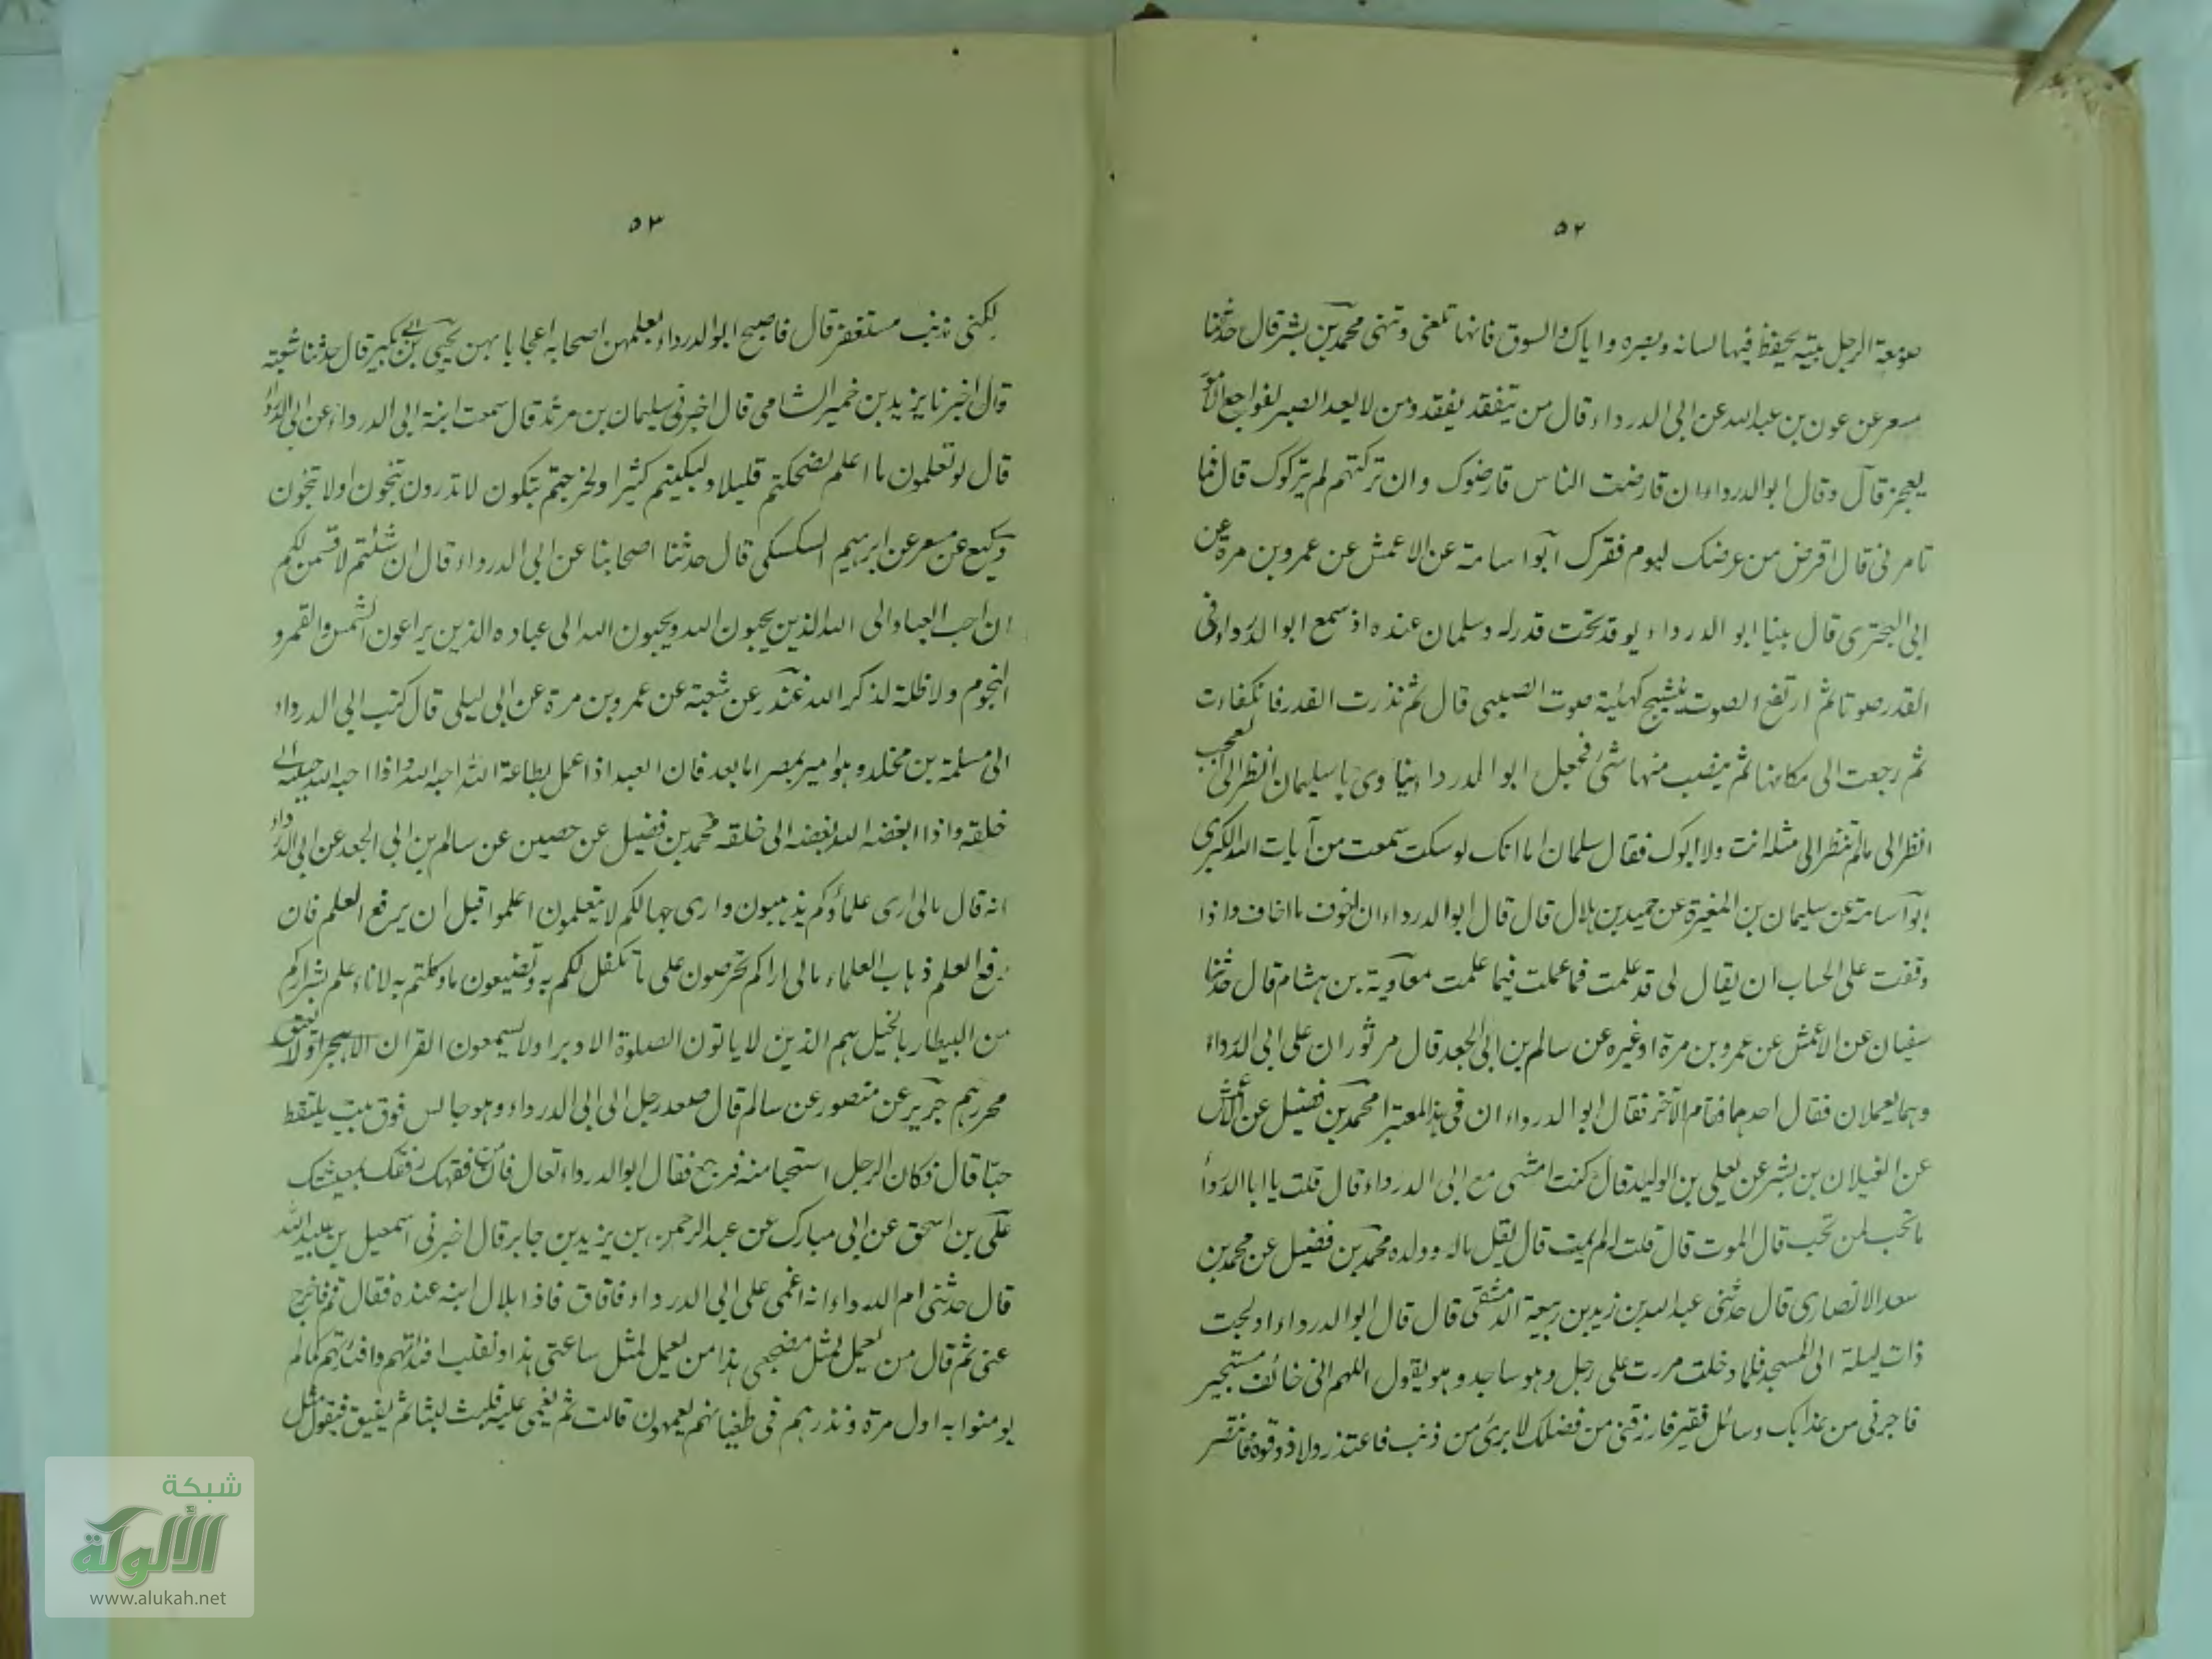 ٥٢
صومعة الرجل بيته يحفظ فيها لسانه وبصره واياك والسوق فانها تلغى وتهى محمد بن بشر قال حدثنا
مسعر عن عون بن عبدالله عن ابى الدرداء قال من يتفقد يفقد ومن لا يعد الصبر لفواجع الامور
يعجز قال وقال ابو الدرداء ان قارضت الناس قارضوك وان تركتهم لم يتركوك قال فما
تامرنى قال اقرض من عرضك ليوم فقرك ابو اسامة عن الاعمش عن عمرو بن مرة عن
ابى البخترى قال بينا ابو الدرداء يوقد تحت قدر له وسلمان عنده اذ سمع ابو الدرداء فى
القدر صوتا ثم ارتفع الصوت بنشيج كهيئة صوت الصبى قال ثم نذرت القدر فانكفاءت
ثم رجعت الى مكانها ثم ينصب منها شئ فجعل ابو الدرداء ينادى يا سليمان انظر الى العجب
انظر الى مالم تنظر الى مثله انت ولا ابوك فقال سلمان اما انك لو سكت سمعت من آيات الله الكبرى
ابو اسامة عن سليمان بن المغيرة عن حميد بن هلال قال قال ابو الدرداء ان اخوف ما اخاف اذا
وقفت على الحساب ان يقال لى قد علمت فما عملت فيما علمت معاوية بن هشام قال حدثنا
سفيان عن الاعمش عن عمرو بن مرة او غيره عن سالم بن ابى الجعد قال مر ثوران على ابى الدرداء
وهما يعملان فقال احدهما فقام الآخر فقال ابو الدرداء ان فى هذا لمعتبرا محمد بن فضيل عن الاعمش
عن الغيلان بن بشر عن يعلى بن الوليد قال كنت امشى مع ابى الدرداء قال قلت يا ابا الدرداء
ما تحب لمن تحب قال الموت قال قلت لم يمت قال يقل ماله وولده محمد بن فضيل عن محمد بن
سعد الانصارى قال حدثنى عبدالله بن زيد بن ربيعة الدمشقى قال قال ابو الدرداء ادلجت
ذات ليلة الى المسجد فلما دخلت مررت على رجل وهو ساجد وهو يقول اللهم انى خائف مستجير
فاجرنى من عذابك وسائل فقير فارزقنى من فضلك لا برئ من ذنب فاعتذر ولا ذو قوة فانتصر
٥٣
لكنى مذنب مستغفر قال فاصبح ابو الدرداء يعلمهن اصحابه اعجابا بهن يحيى بن ابى بكير قال حدثنا شعبة
قال اخبرنا يزيد بن خمير الشامى قال اخبرنى سليمان بن مرثد قال سمعت ابنة ابى الدرداء عن ابى الدرداء
قال لو تعلمون ما اعلم لضحكتم قليلا ولبكيتم كثيرا ولخرجتم تبكون لا تدرون تنجون او لا تنجون
وكيع عن مسعر عن ابرهيم السكسكى قال حدثنا اصحابنا عن ابى الدرداء قال ان شئتم لاقسمن لكم
ان احب العباد الى الله الذين يحبون الله ويحببون الله الى عباده الذين يراعون الشمس والقمر و
النجوم والاظلة لذكر الله غندر عن شعبة عن عمرو بن مرة عن ابى ليلى قال كتب ابى الدرداء
الى مسلمة بن مخلد وهو امير بمصر اما بعد فان العبد اذا عمل بطاعة الله احبه الله واذا احبه الله حببه الى
خلقه واذا ابغضه الله بغضه الى خلقه محمد بن فضيل عن حصين عن سالم بن ابى الجعد عن ابى الدرداء
انه قال مالى ارى علماؤكم يذهبون وارى جهالكم لا يتعلمون اعلموا قبل ان يرفع العلم فان
رفع العلم ذهاب العلماء مالى اراكم تحرصون على ما تكفل لكم به وتضيعون ما وكلتم به لاناء علم بشراركم
من البيطار بالخيل هم الذين لا ياتون الصلوة الا دبرا ولا يسمعون القران الا هجرا ولا يعتق
محررهم جرير عن منصور عن سالم قال صعد رجل الى ابى الدرداء وهو جالس فوق بيت يلتقط
حبا قال فكان الرجل استحيا منه فرجع فقال ابو الدرداء تعال فان من فقهك رفقك بمعيشتك
على بن اسحق عن ابى مبارك عن عبدالرحمن بن يزيد بن جابر قال اخبرنى اسمعيل بن عبيدالله
قال حدثتنى ام الدرداء انه اغمى على ابى الدرداء فافاق فاذا بلال ابنه عنده فقال قم فاخرج
عنى ثم قال من يعمل لمثل مضجعى هذا من يعمل لمثل ساعتى هذا ونقلب افئدتهم وابصارهم كما لم
يومنوا به اول مرة ونذرهم فى طغيانهم يعمهون قالت ثم يغمى عليه فلبث لبثا ثم يفيق فيقول مثل
شبكة
الألوكة
www.alukah.net